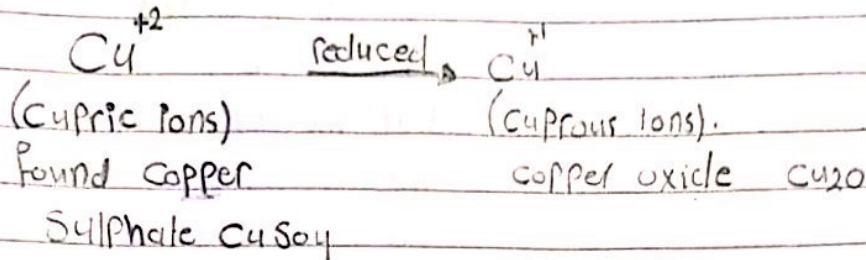 Cu+2 reduced Cu+1
(Cupric ions) (cuprous ions).
found copper copper oxide Cu2O
Sulphate CuSO4